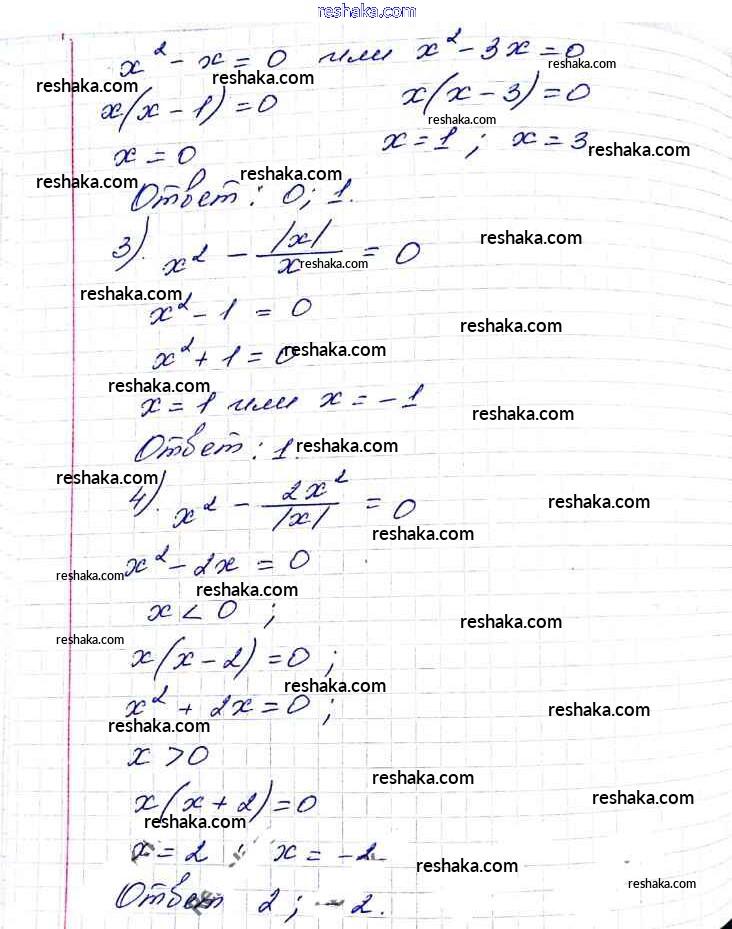 reshaka.com
x² - x = 0 или x² - 3x = 0
reshaka.com reshaka.com reshaka.com
x(x - 1) = 0 x(x - 3) = 0
reshaka.com
x = 0 x = 1; x = 3 reshaka.com
reshaka.com reshaka.com
Ответ: 0; 1.
3). x² - |x|/x = 0 reshaka.com
reshaka.com
reshaka.com
x² - 1 = 0
reshaka.com
x² + 1 = 0 reshaka.com
reshaka.com
x = 1 или x = -1 reshaka.com
Ответ: 1. reshaka.com
reshaka.com
4). x² - 2x²/|x| = 0 reshaka.com
reshaka.com
x² - 2x = 0
reshaka.com reshaka.com
x < 0 ; reshaka.com
reshaka.com
x(x - 2) = 0 ;
reshaka.com
x² + 2x = 0 ; reshaka.com
reshaka.com
x > 0
reshaka.com
x(x + 2) = 0 reshaka.com
reshaka.com
x = 2 ; x = -2
reshaka.com
reshaka.com
Ответ 2; -2.